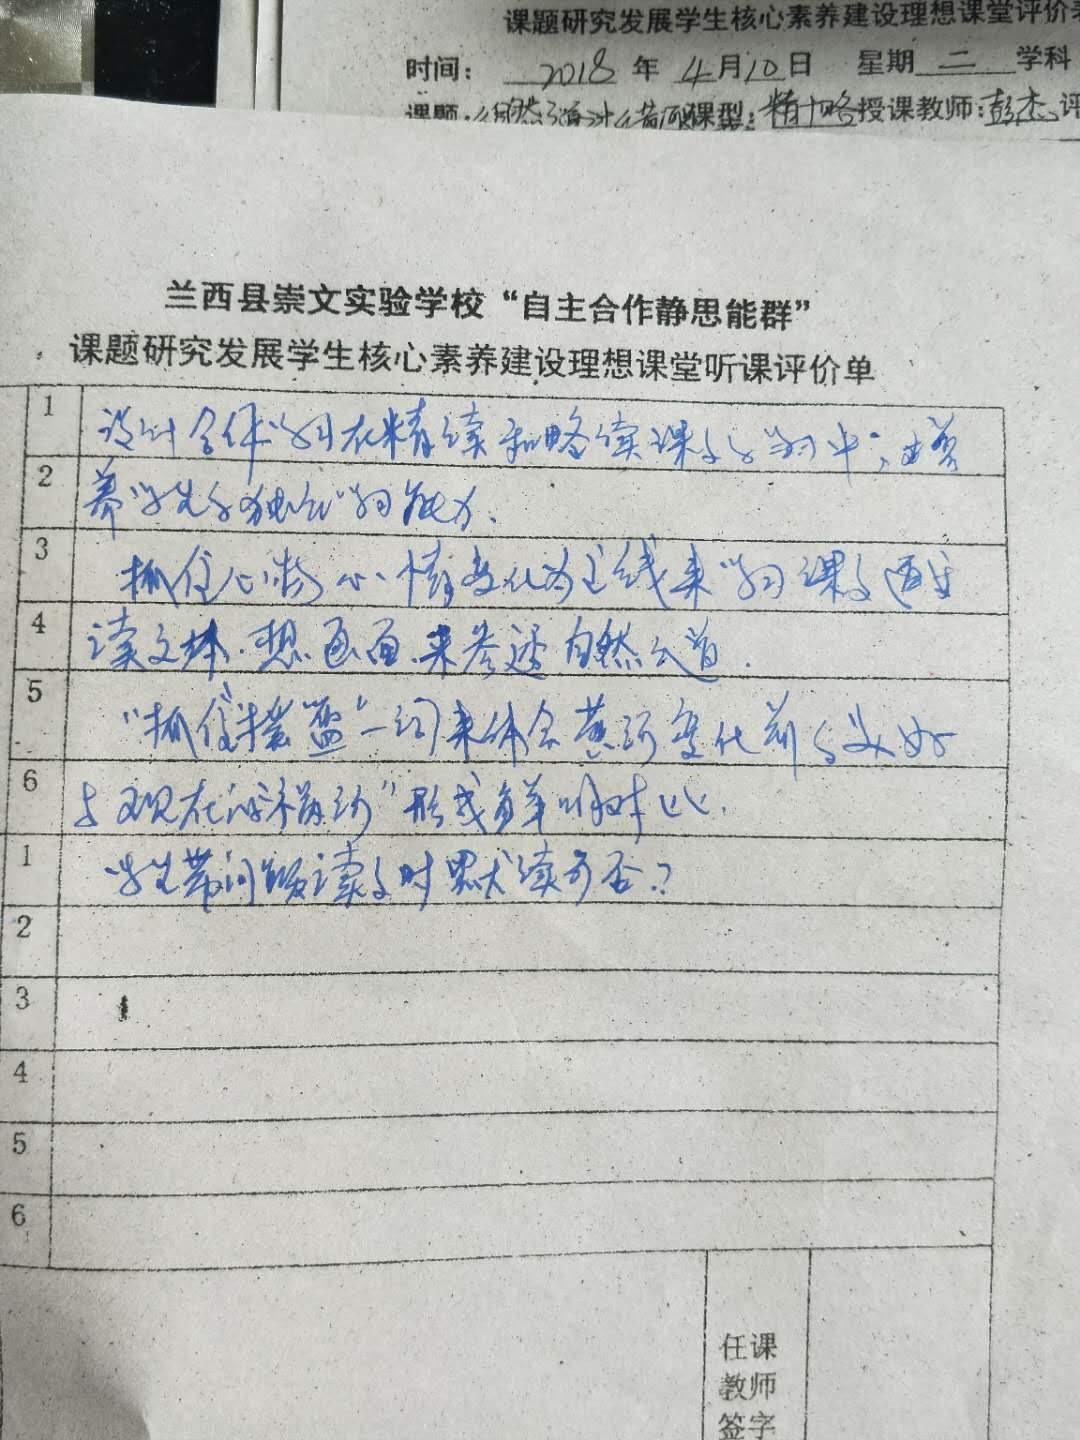 课题研究发展学生核心素养建设理想课堂评价
时间: 2018 年 4月10日 星期 二 学科
课题: 课型: 精+略 授课教师: 彭杰 评
兰西县崇文实验学校“自主合作静思能群”
课题研究发展学生核心素养建设理想课堂听课评价单
1 设计合作学习在精读和略读课的学习中,
2 养学生的独立学习能力、
3 抓住心情变化为主线来学习课
4 读文本、想画面、来 自然之道.
5 “抓住 一词来体会黄河变化前的美好
6 与现在 形成鲜明对比.
1 学生带问题读的时默读可否?
2
3
4
5
6
任课
教师
签字